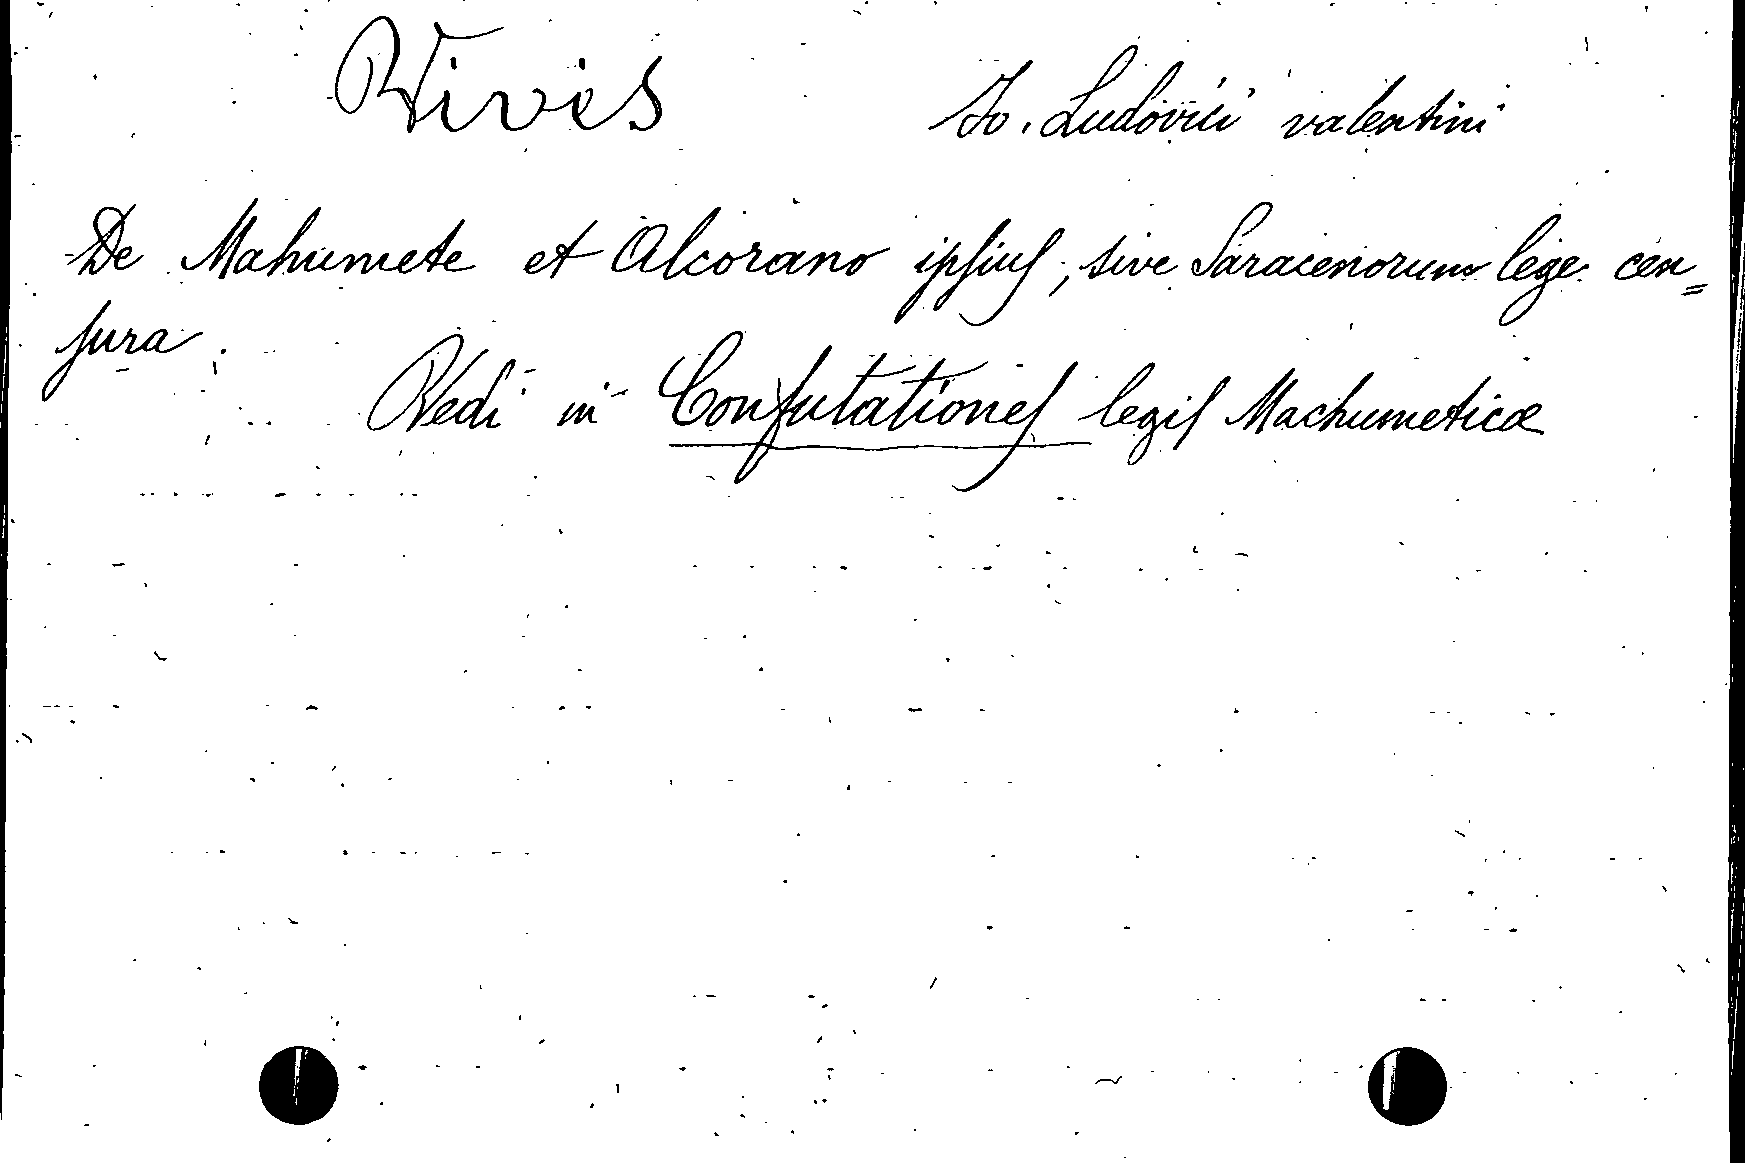 Vives Jo. Ludovici valentini
De Mahumete et Alcorano ipsius, sive Saracenorum lege cen=
sura.
Vedi in Confutationes legis Machumeticæ